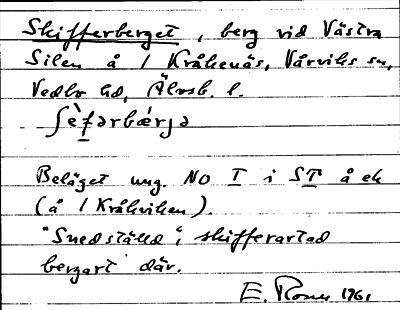 Skifferberget, berg vid Västra
Silen å 1 Kråkenäs, Vårviks sn,
Vedbo hd, Älvsb. l.
ʃè̀fərbǽrjə
Beläget ung. NO T i ST å ek
(å 1 Kråkviken).
"Snedställd", skifferartad
bergart där.
E. 1961